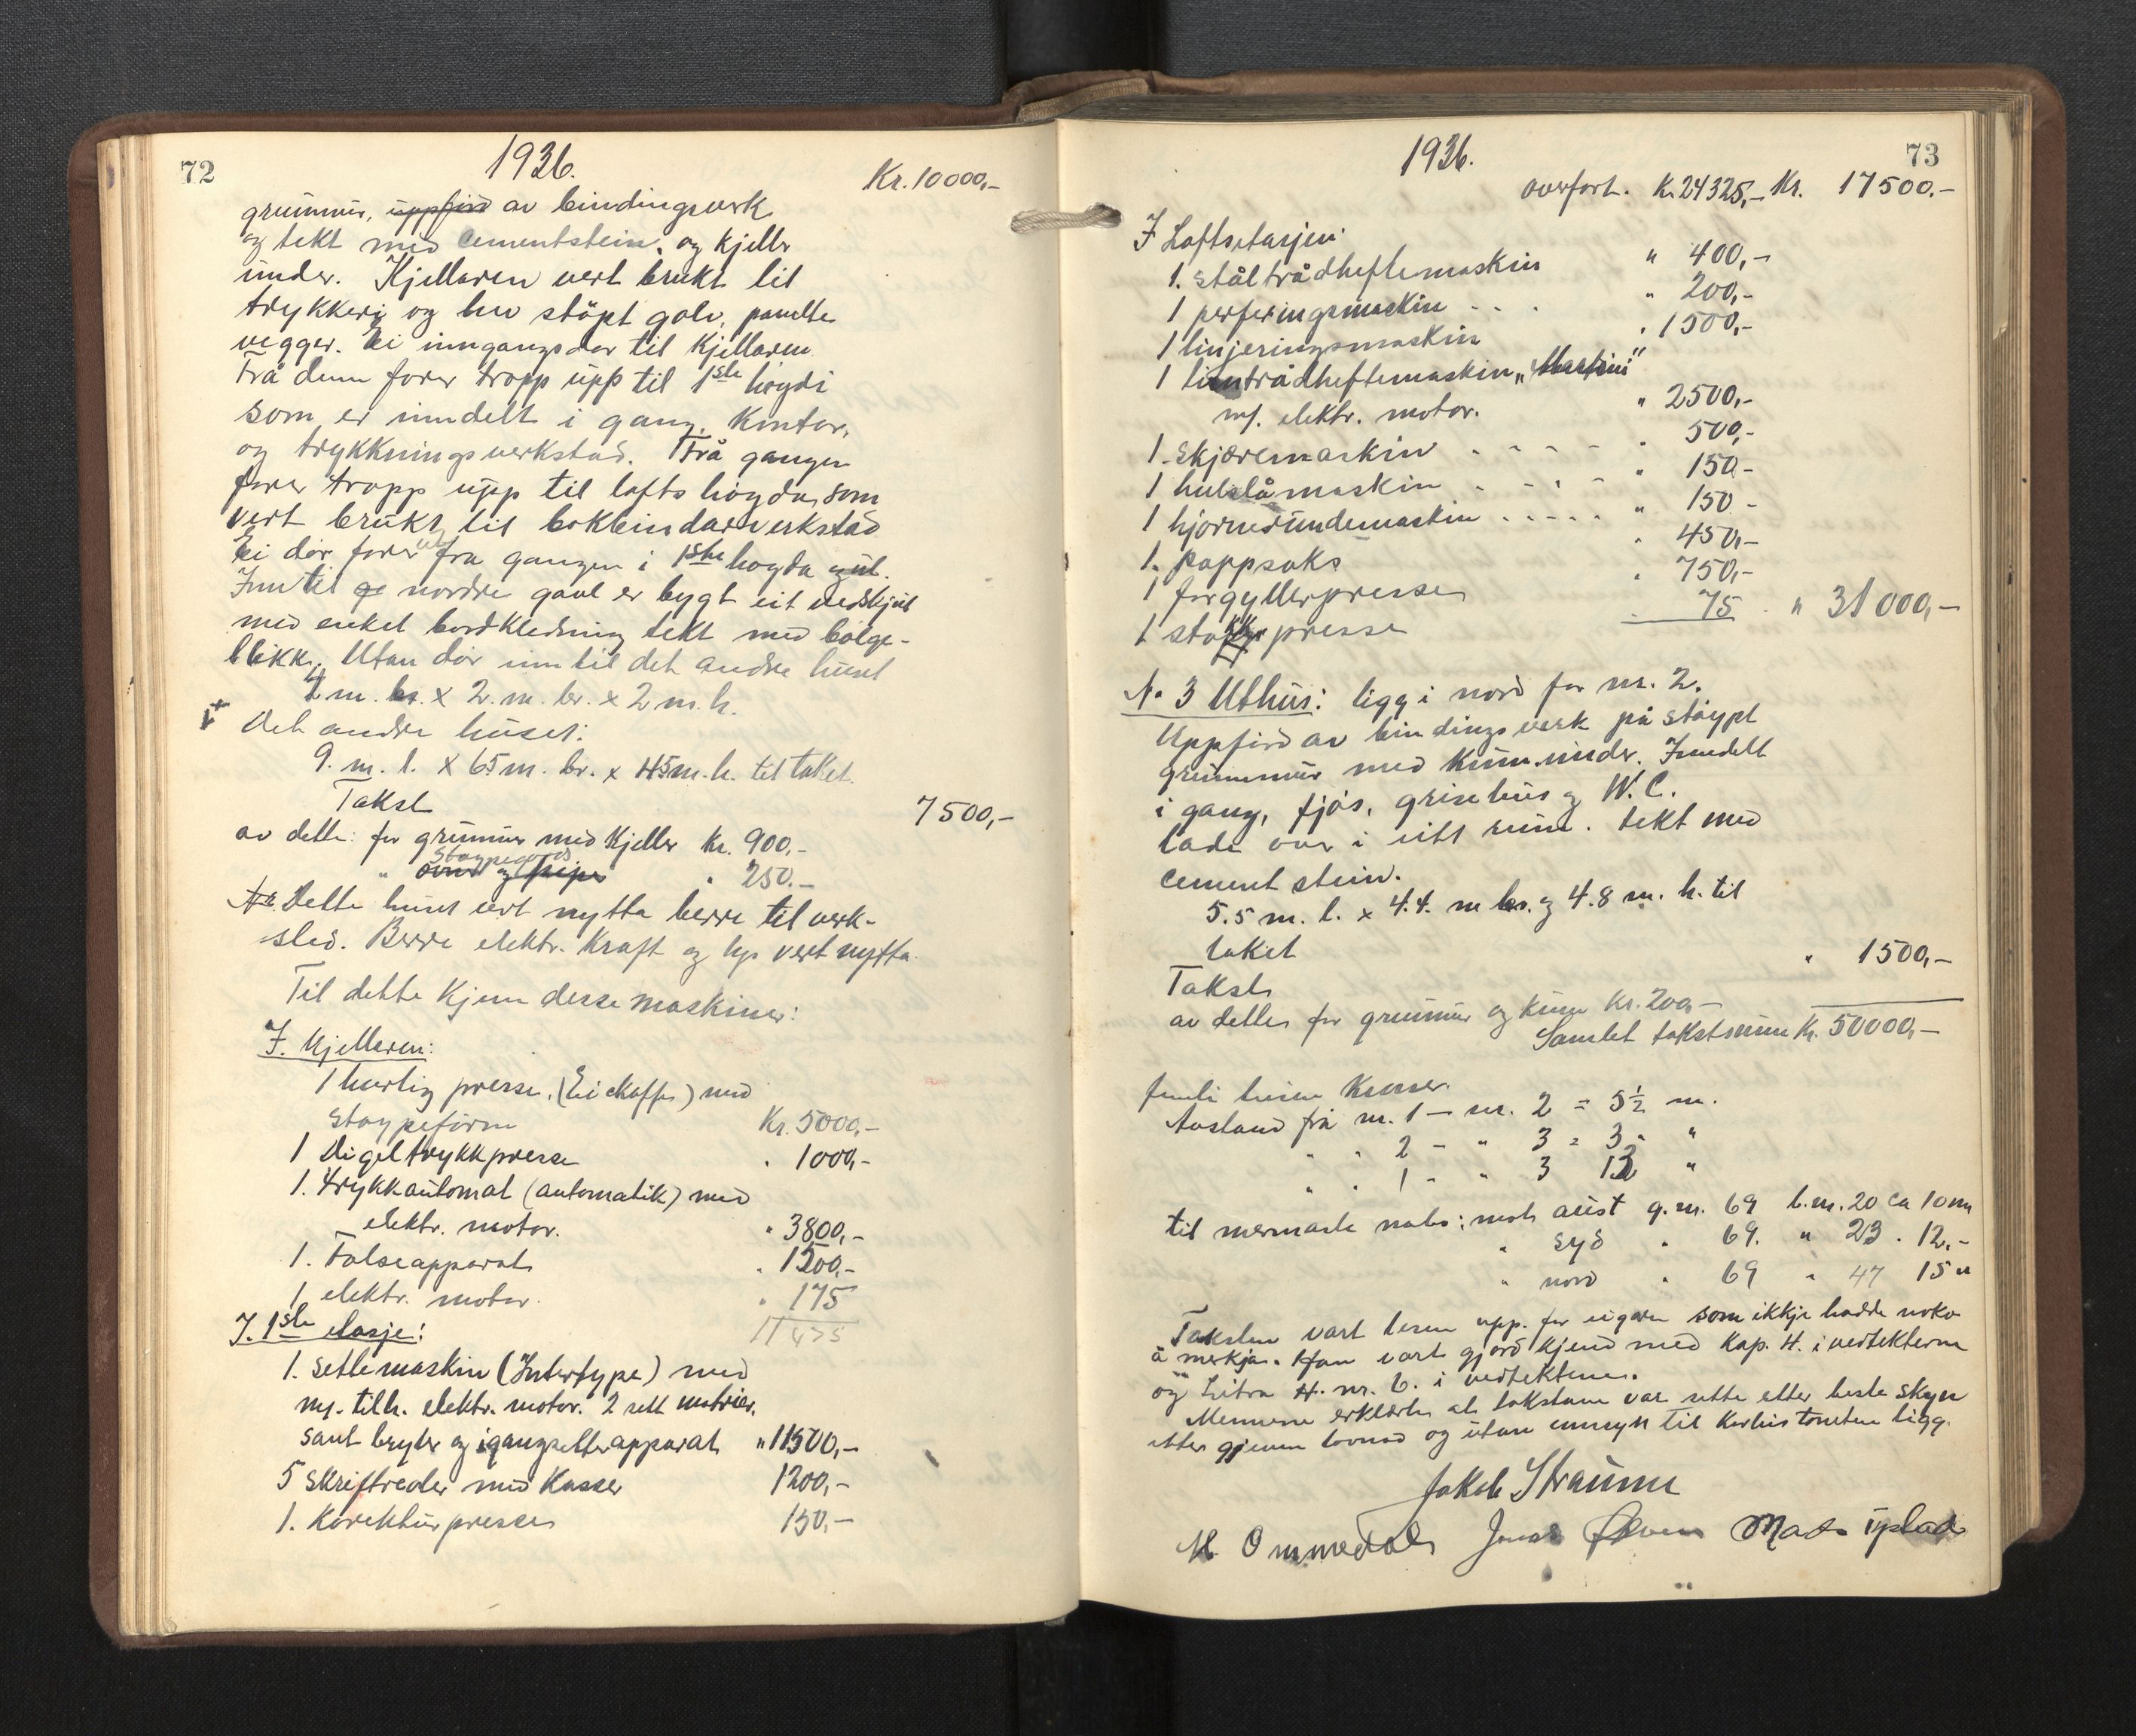 72
1936.
Kr. 10000,-
grunnmur, uppførd av bindingsverk
og tekt med cementstein, og kjeller
under. Kjellaren vert brukt til
trykkeri og hev støpt golv, panelte
vegger. Ei inngangsdør til Kjellaren
Frå denne fører tropp upp til 1ste høgdi
som er inndelt i gang, Kontor,
og trykkningsverkstad. Frå gangen
fører tropp upp til lofts høgda, som
vert brukt til bokbindarverkstad
Ei dør fører ut frå gangen i 1ste høgda
Inn til nordre gavl er bygt eit vedskjul
med enkel bordkledning tekt med bølge-
blikk. Utan dør inn til det andre huset
m. x 2. m. br. x 2 m. h.
Det andre huset:
9. m. l. x 65 m. br. x 45 m. h. til taket.
Takst
7500,-
av dette: for grunnmur med Kjeller Kr. 900,-
" ovner og piper " 250.-
Dette huset vert nytta berre til verk-
sted. Berre elektr. Kraft og lys vert nytta.
Til dette kjem desse maskiner:
I. Kjellaren:
1 hurtig presse. (Eickhoffs) med
støypeform Kr. 5000,-
1 Digeltrykkpresse " 1000,-
1. Trykkautomat (automatik) med
elektr. motor. " 3800,-
1. Falseapparat " 1500,-
1 elektr. motor. " 175
11475
I. 1ste etasje:
1. settemaskin (Intertype) med
ny. tilh. elektr. motor. 2 sett matriser,
samt bryter og igangsetterapparat " 11500,-
5 skriftreoler med Kasser 1200,-
1. Korekturpresse 150,-
73
1936.
overført. Kr. 24325,- Kr. 17500.-
I Loftsetasjen:
1. ståltrådheftemaskin " 400,-
1 perferingsmaskin " 200,-
1 linjeringsmaskin " 1500,-
1 trådheftemaskin "Martini"
m/. elektr. motor. " 2500,-
1. skjæremaskin " 500,-
1 hulslåmaskin " 150-
1 hjørnerundemaskin " 150-
1. pappsaks " 450,-
1 forgyllerpresse " 750,-
1 stokkpresse 75 " 31000,-
No 3 Uthus: ligg i nord for nr. 2.
Uppførd av bindingsverk på støypt
grunnmur med Kum under. Inndelt
i gang, fjøs, grisehus og W.C.
lade over i eitt rum. tekt med
cementstein.
5.5 m. l. x 4.4. m br. og 4.8 m. h. til
taket
Takst " 1500,-
av dette for grunnmur og kum Kr. 200,-
Samlet takstsum Kr. 50000,-
Avstand frå nr. 1 - nr. 2 = 5½ m.
" " 2 - " 3 = 3 "
" " 1 - " 3 "
til nermaste nabo: mot aust g.nr. 69 b.nr. 20 ca 10 m
" syd " 69. " 23. 12.-
" nord " 69 " 47 15 "
Taksten vart lesen upp. for eigaren som ikkje hadde noko
å merkja. Han vart gjord kjend med Kap. 4. i vedtektene
og Litra H. nr. 6. i vedtektene.
Mennene erklærte at takstane var sette etter beste skyn
etter gjeven lovnad og utan umsyn til kor hus tomten ligg.
Jakob Straume
M. Ommedal Jonas Øvren Mads